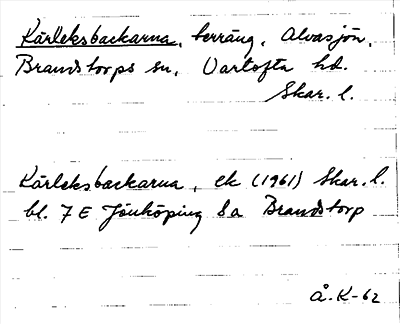 Kärleksbackarna, terräng, Alvasjön,
Brandstorps sn, Vartofta hd.
Skar. l.
Kärleksbackarna, ek (1961) Skar. l.
bl. 7 E Jönköping 8a Brandstorp
Å.K-62